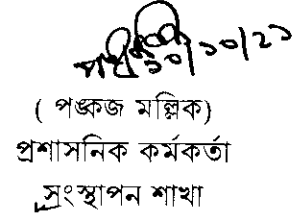 ১০/১০/২১
( পঙ্কজ মল্লিক)
প্রশাসনিক কর্মকর্তা
সংস্থাপন শাখা